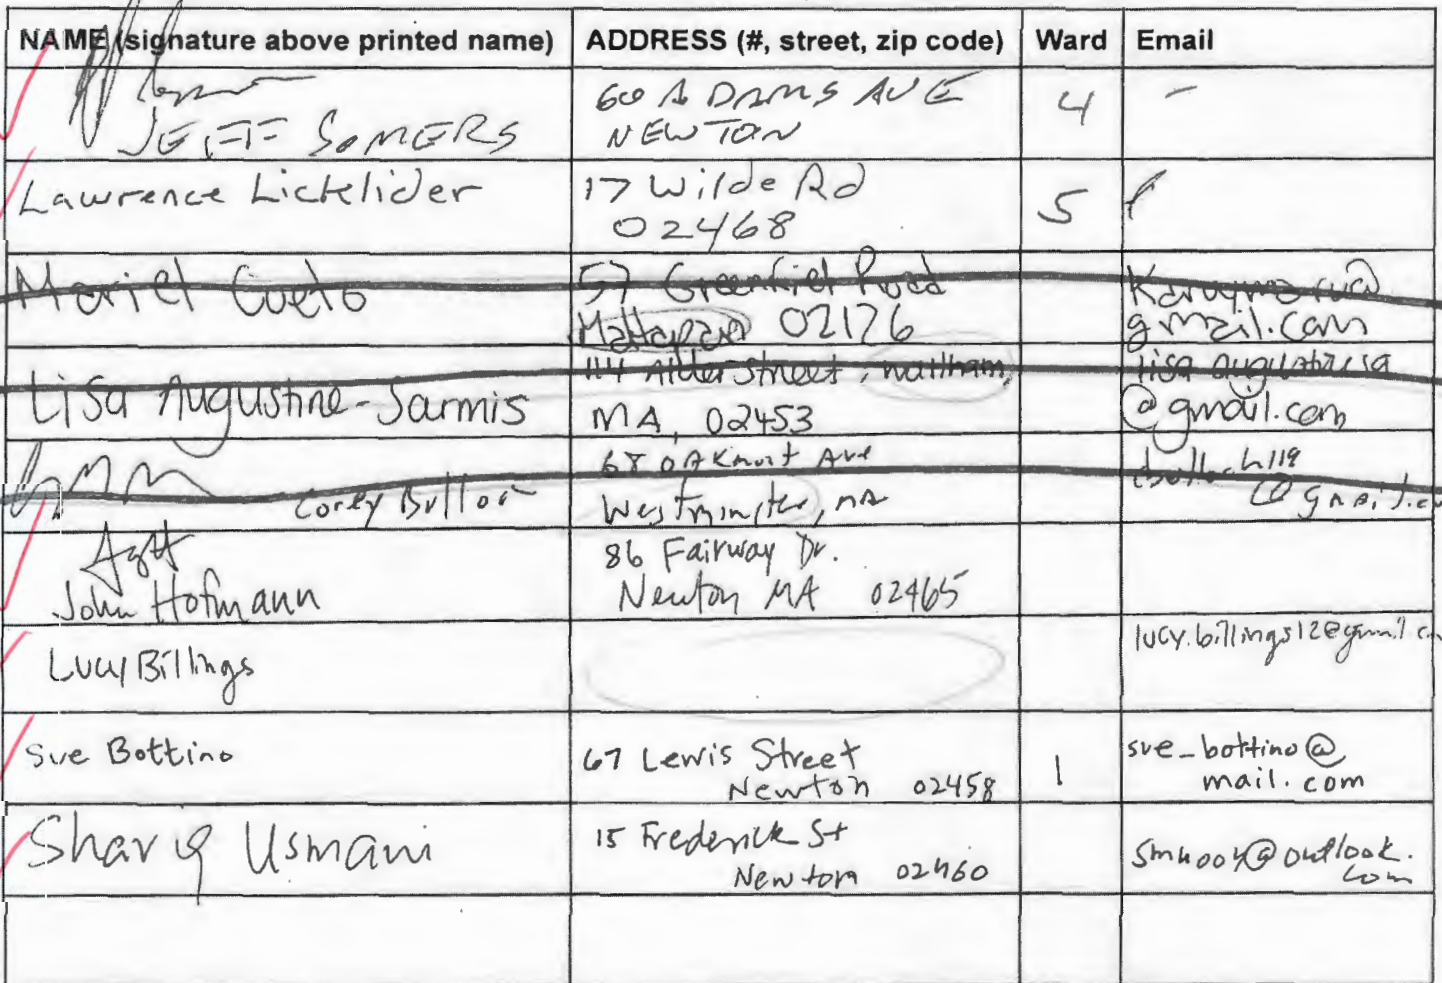 NAME (signature above printed name) ADDRESS (#, street, zip code) Ward Email
JEFF SOMERS
60 ADAMS AVE
NEWTON
4
-
Lawrence Lickelider
17 Wilde Rd
02468
5
Mariel Cueto
57 Road
Mattapan 02126
gmail.com
Lisa Augustine-Sarmis
114 Alder Street, waltham,
MA, 02453
lisa
@gmail.com
Corey
Ave
Westminster, MA
@gmail.c
John Hofmann
86 Fairway Dr.
Newton MA 02465
Lucy Billings
lucy.billings12@gmail.c
Sue Bottino
67 Lewis Street
Newton 02458
1
sue_bottino@
mail.com
Shariq Usmani
15 Frederick St
Newton 02460
@outlook.
com